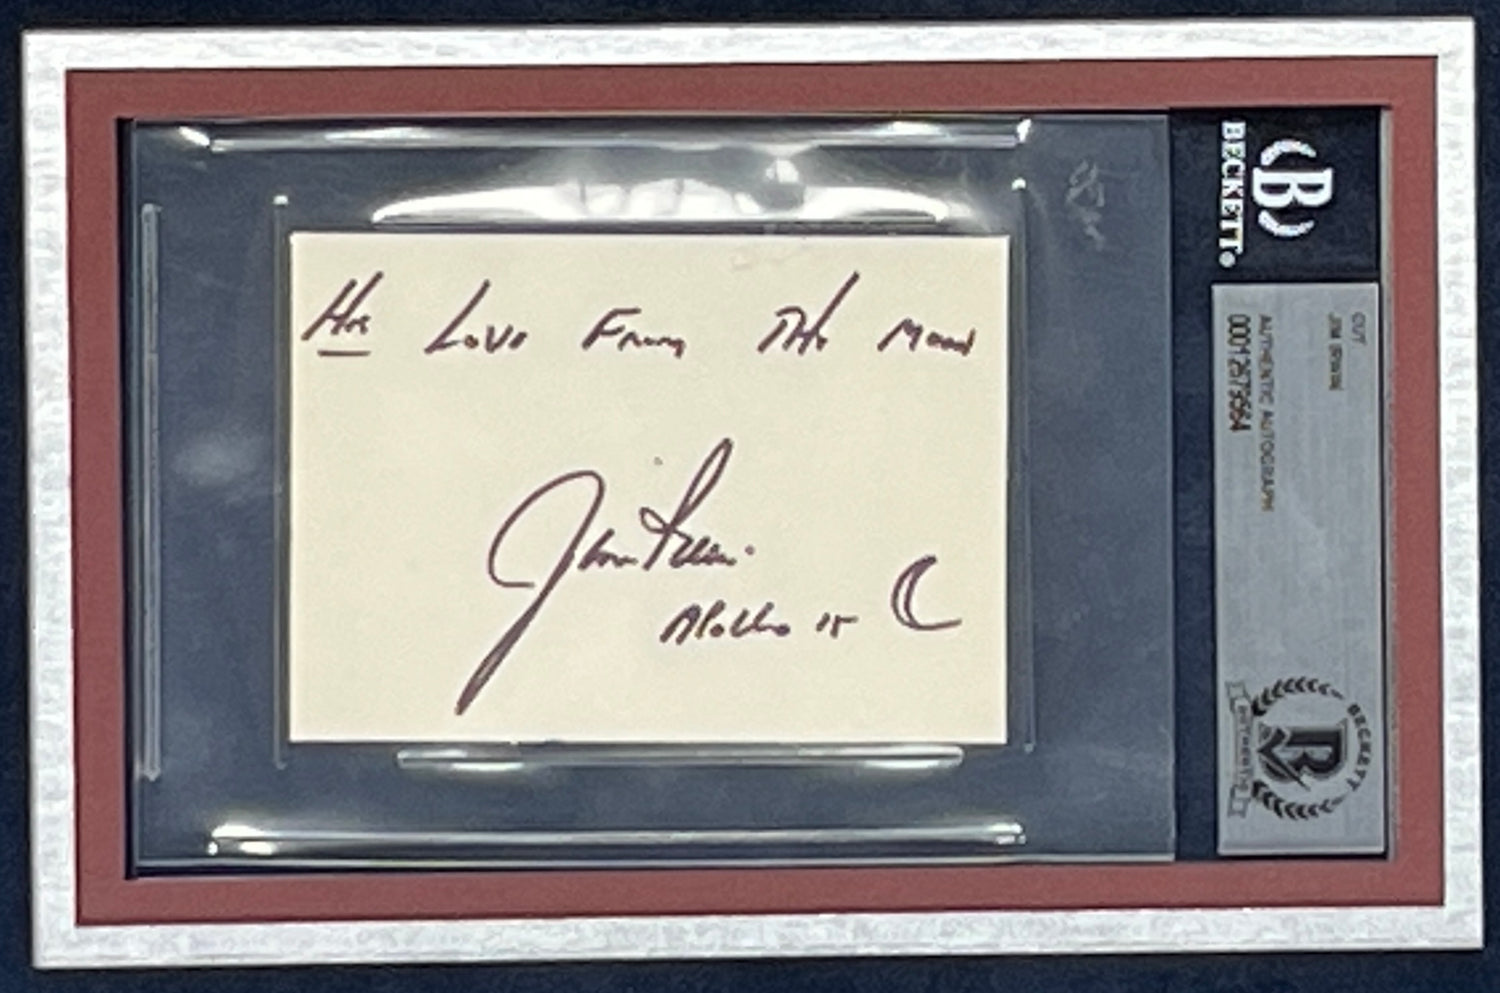 His Love From The Moon
Jim Irwin
Apollo 15
BECKETT®
B
CUT
JIM IRWIN
AUTHENTIC AUTOGRAPH
0001267
BECKETT
AUTHENTIC